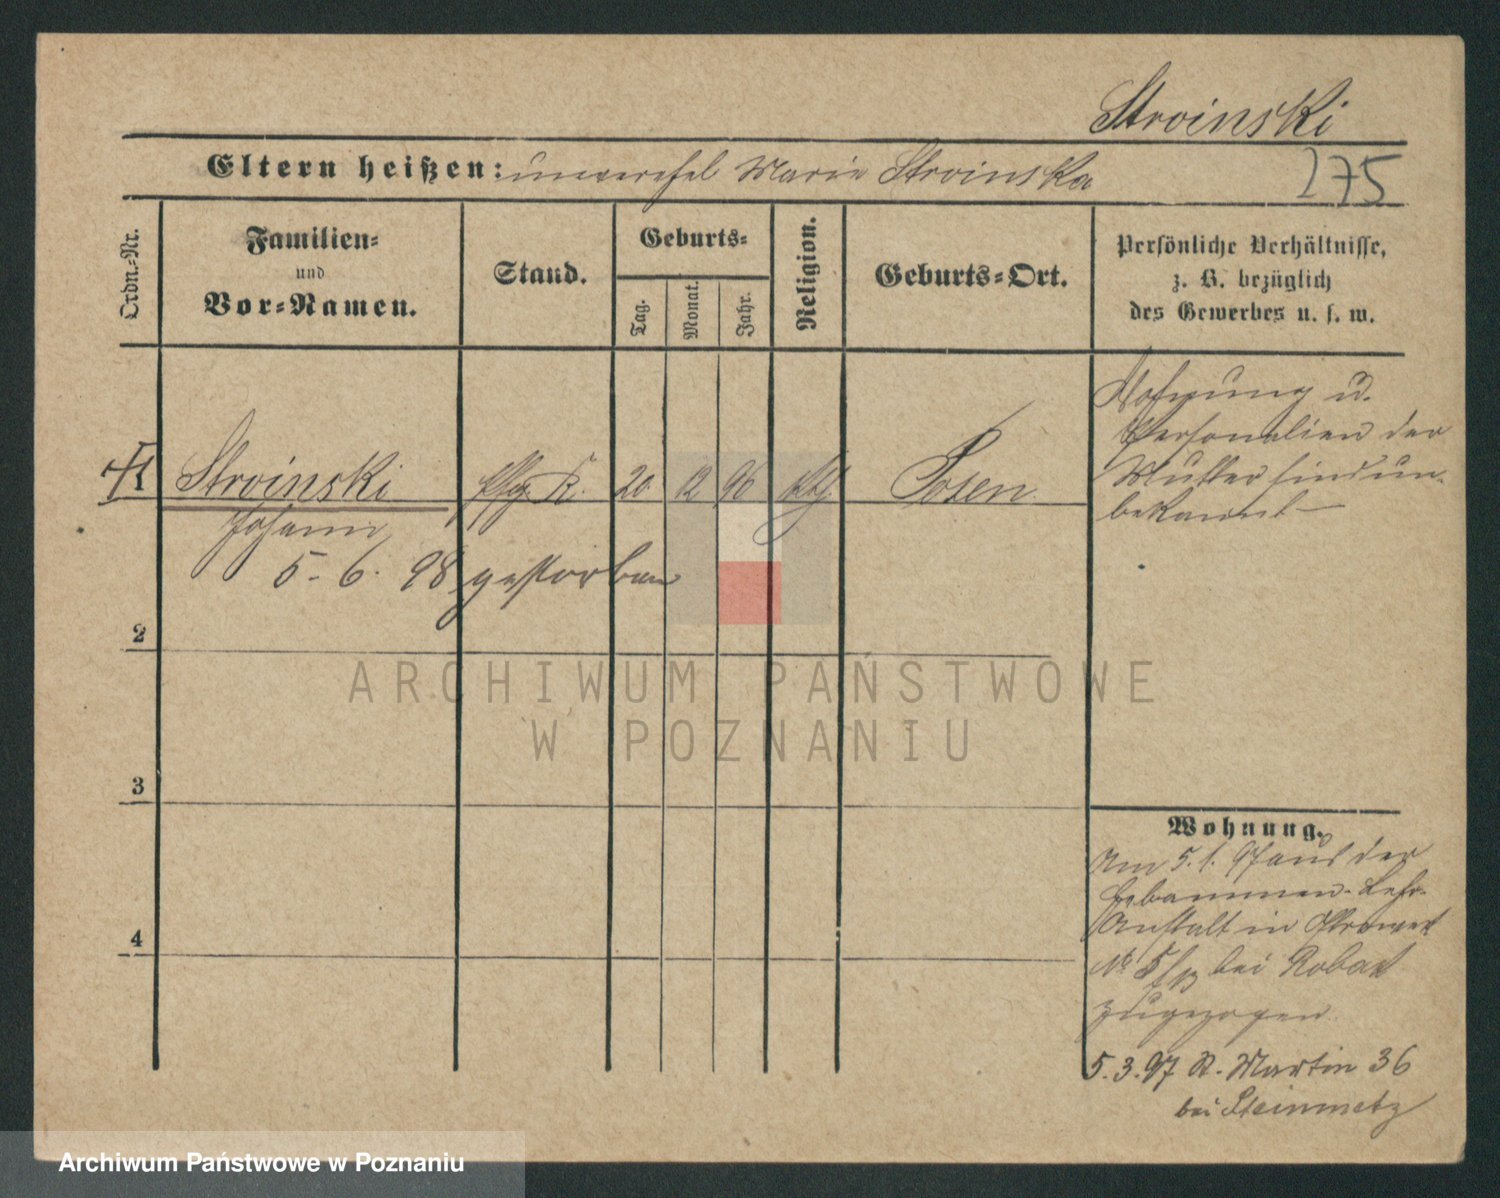 Stroinski
Eltern heißen: unverehel Marie Stroinska
275
Ordn.-Nr.
Familien-
und
Vor-Namen.
Stand.
Geburts-
Tag.
Monat.
Jahr.
Religion.
Geburts-Ort.
Persönliche Verhältnisse,
z. B. bezüglich
des Gewerbes u. s. w.
1 Stroinski Pfleg K. 20 12 96 kth Posen
Johann
5. 6. 98 gestorben
Wohnung u.
Personalien der
Mutter sind un-
bekannt
2
3
4
Wohnung.
Am 5. 1. 97 aus der
Hebammen-Lehr-
Anstalt in
No bei
zugezogen
5. 3. 97 St. Martin 36
bei Steinmetz
ARCHIWUM PAŃSTWOWE
W POZNANIU
Archiwum Państwowe w Poznaniu